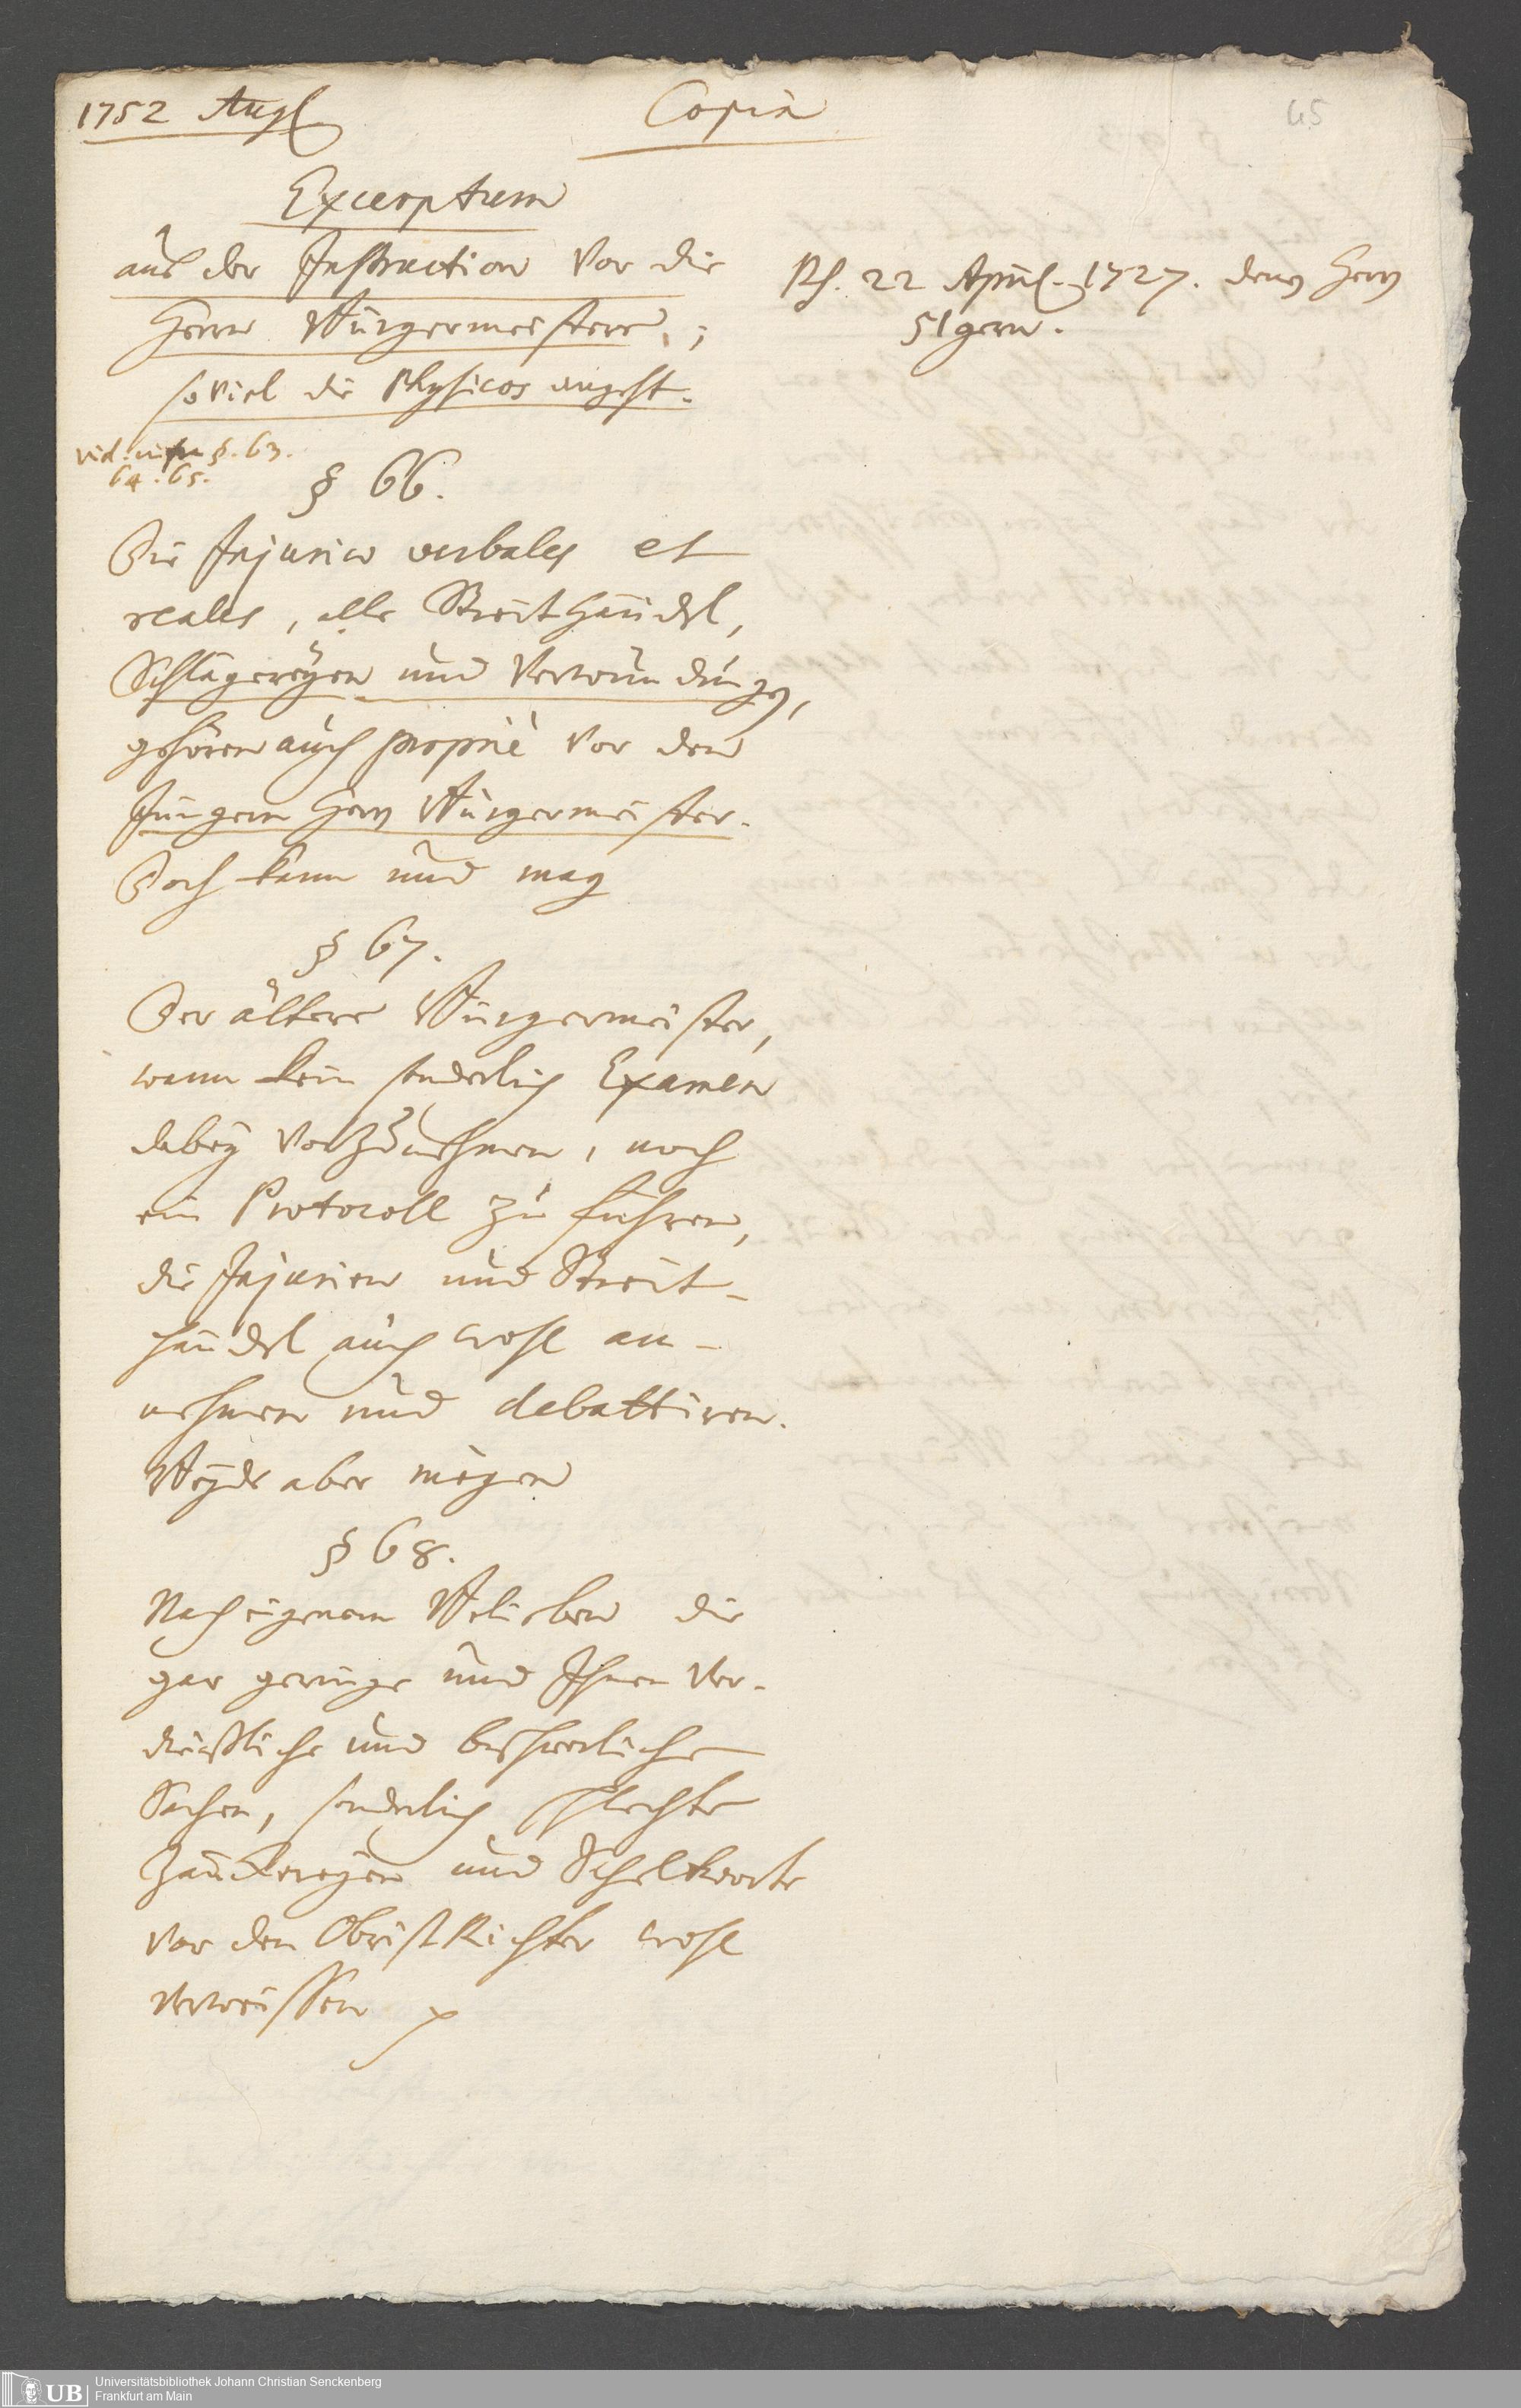 1752 Aug
Copia
65
Excerptum
aus der Instruction vor die
Herrn Bürgermeistere,;
so viel die Physicos angeht.
vid. infra §. 63.
64. 65.
22 April. 1727. denen Herrn
51gern.
§ 66.
Die Injurien verbales et
reales, alle Streithändel,
Schlägereyen und Verwundungen,
gehören auch propriè vor den
Jüngern Herrn Bürgermeister.
Doch kann und mag
§ 67.
Der ältere Bürgermeister,
wann kein sonderlich Examen
dabey vorzunehmen, noch
ein Protocoll zu führen,
die Injurien und Streit-
händel auch wohl an-
nehmen und debattiren.
Beyde aber mögen
§ 68.
Nach eigenem Belieben die
gar geringe und Ihnen ver-
drüßliche und beschwerliche
Sachen, sonderlich schlechte
Zänckereyen und Scheltworte
vor den Obrist Richter wohl
verweissen
Universitätsbibliothek Johann Christian Senckenberg
UB
Frankfurt am Main